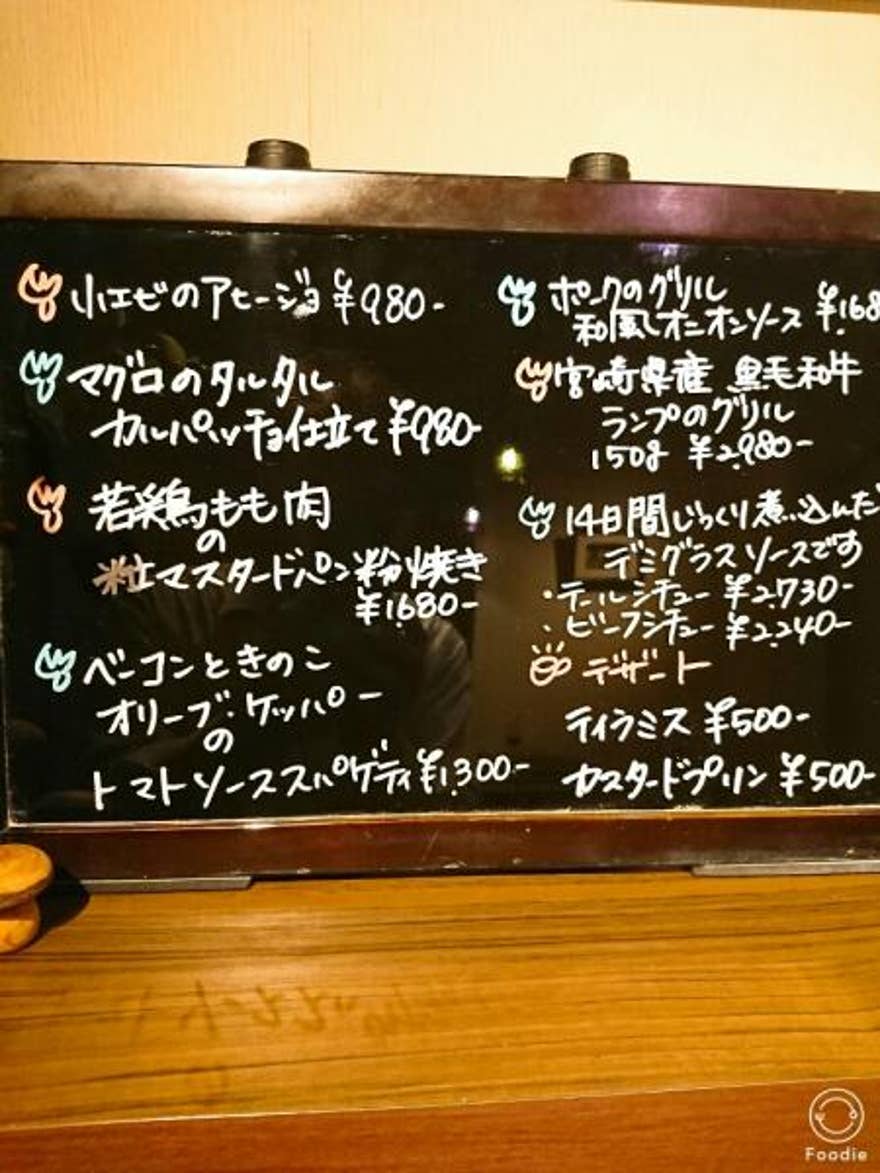 小エビのアヒージョ ¥980-
マグロのタルタル
カルパッチョ仕立て ¥980-
若鶏もも肉
の
粒マスタードパン粉焼き
¥1680-
ベーコンときのこ
オリーブ・ケッパー
の
トマトソーススパゲティ ¥1,300-
ポークのグリル
和風オニオンソース ¥168
宮崎県産 黒毛和牛
ランプのグリル
150g ¥2,980-
14日間じっくり煮込んだ
デミグラスソースです
・テールシチュー ¥2,730-
・ビーフシチュー ¥2,240-
デザート
ティラミス ¥500-
カスタードプリン ¥500-
Foodie